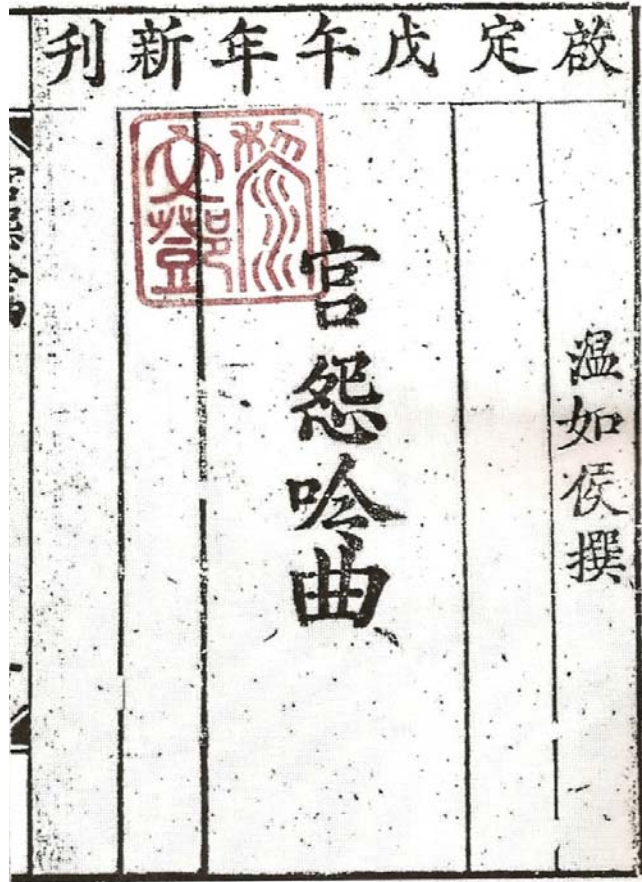 啟定戊午年新刊
温如侯撰
宫怨吟曲